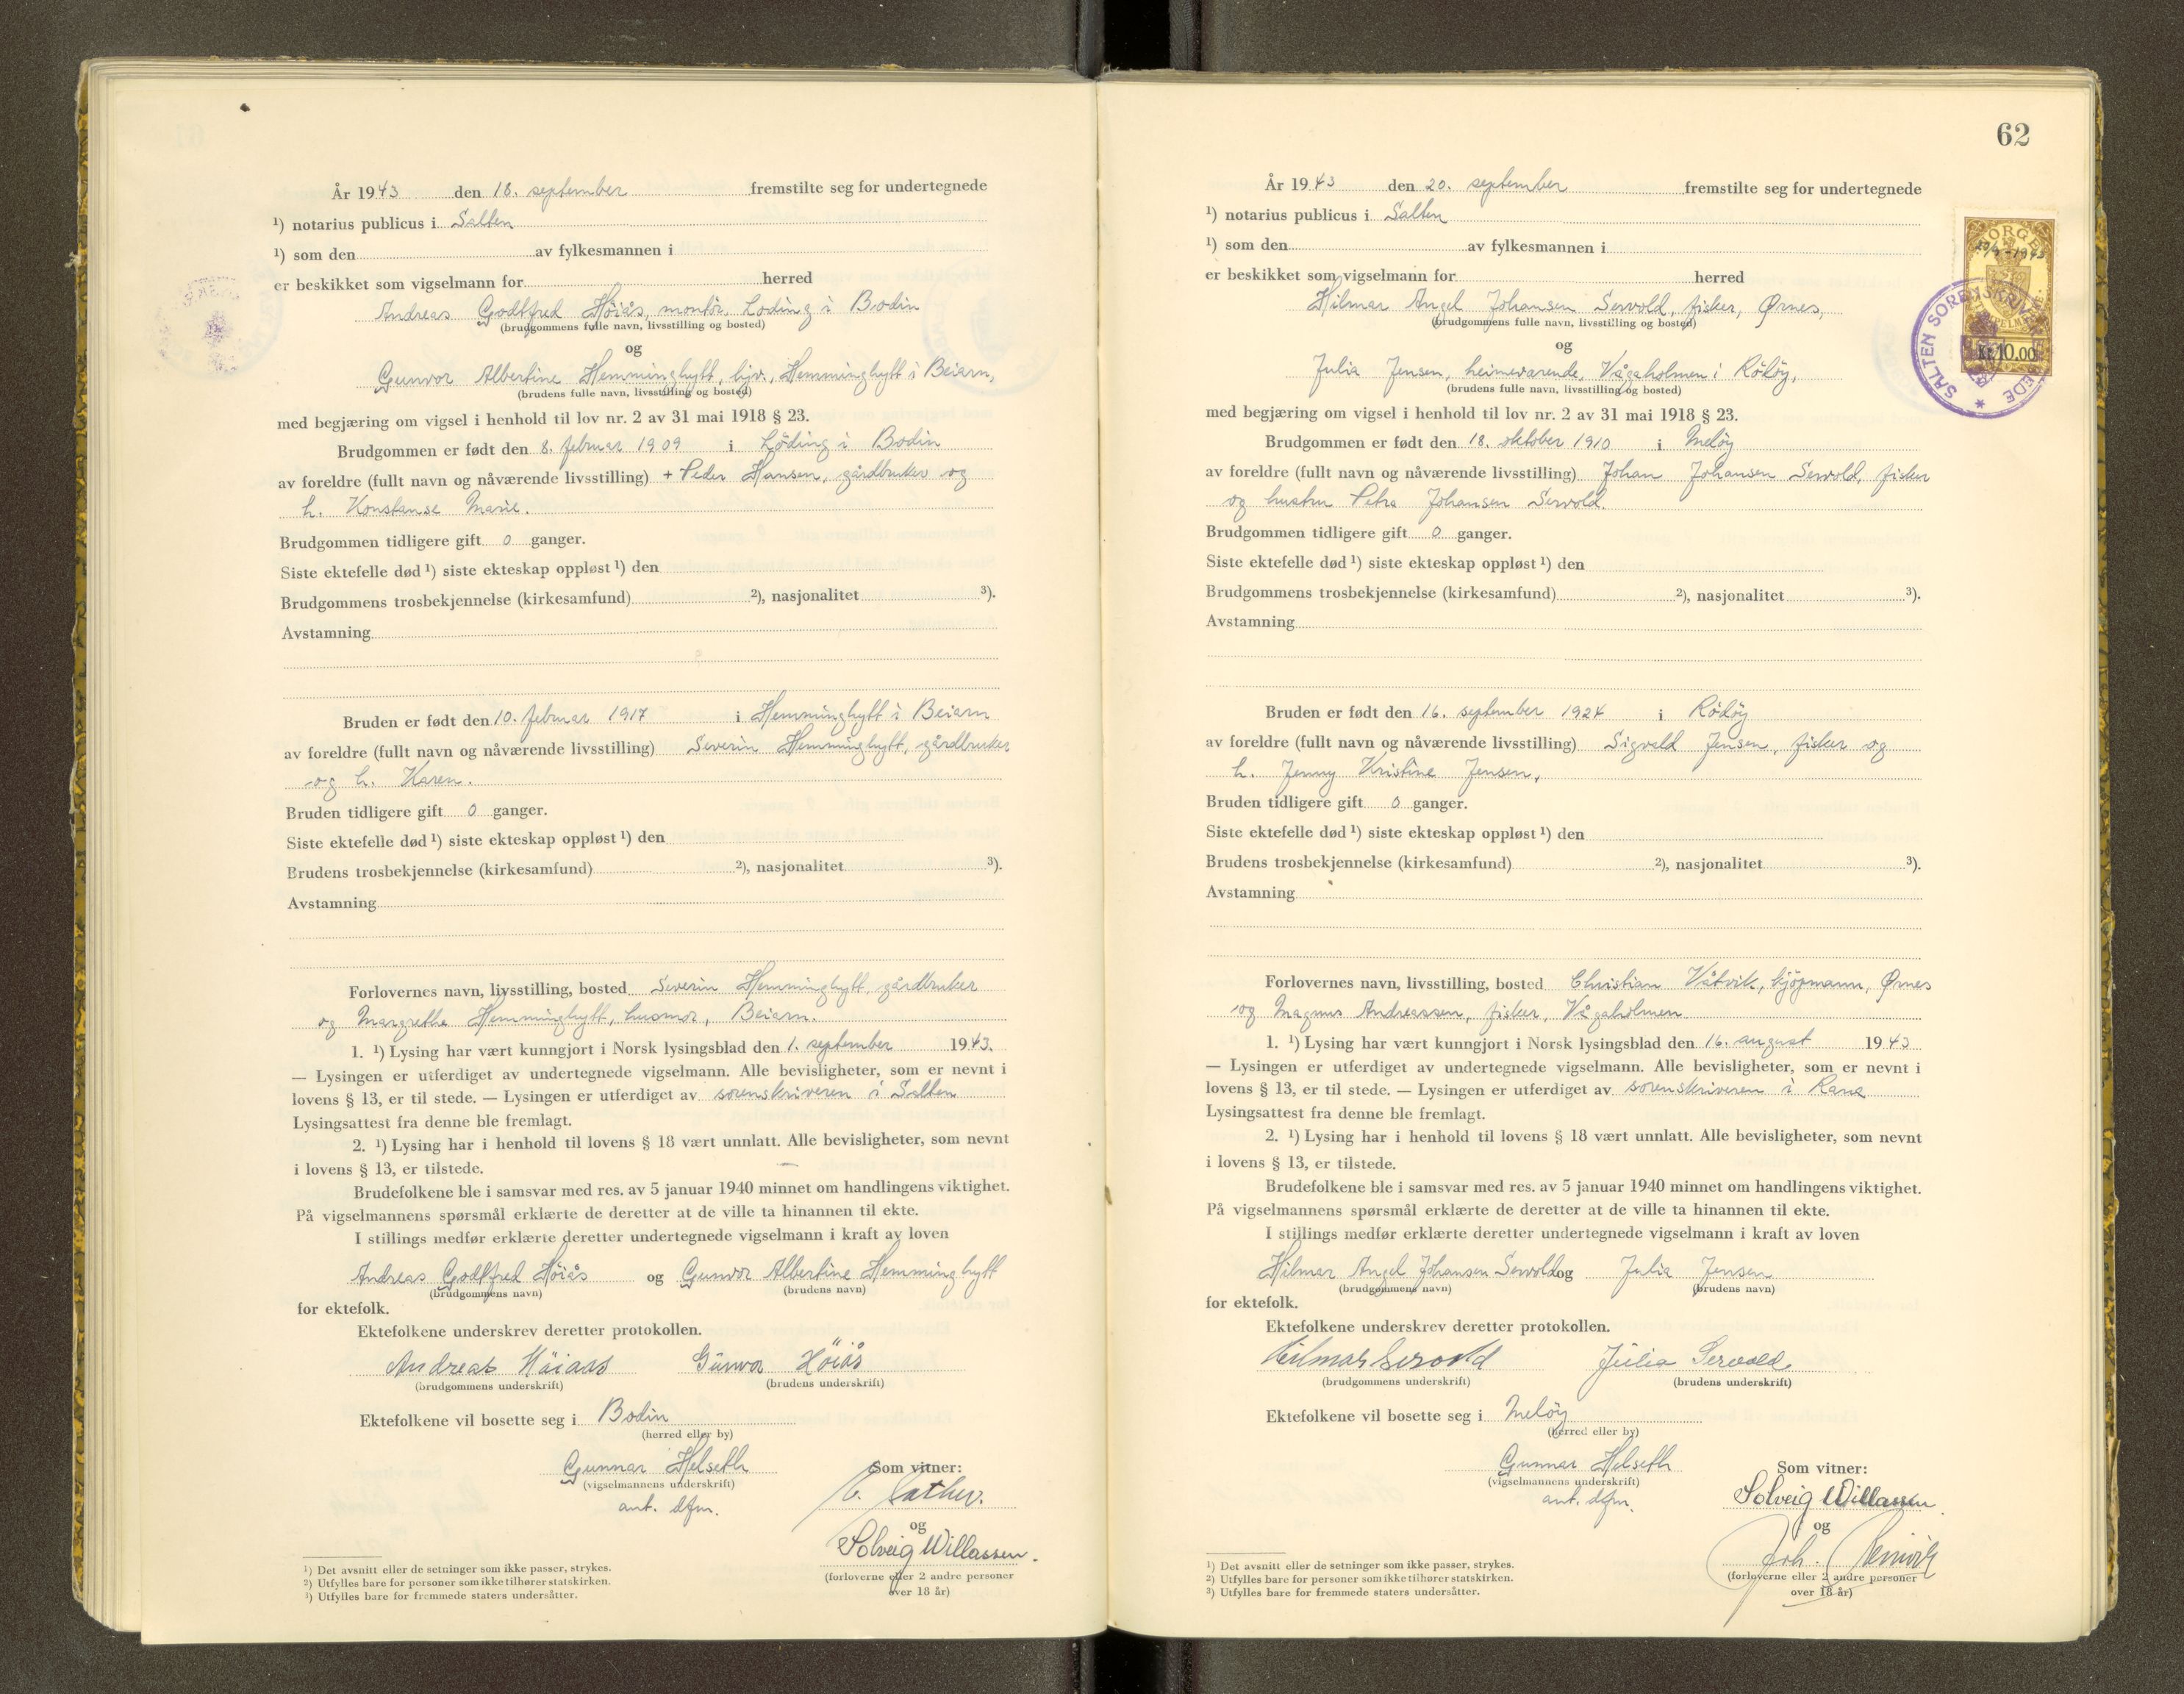 År 1943 den 18. september fremstilte seg for undertegnede
¹) notarius publicus i Salten
¹) som den av fylkesmannen i
er beskikket som vigselmann for herred
Andreas Godtfred Höiås, montör, Löding i Bodin
(brudgommens fulle navn, livsstilling og bosted)
og
Gunvor Albertine Hemminghytt, hjv., Hemminghytt i Beiarn,
(brudens fulle navn, livsstilling og bosted)
med begjæring om vigsel i henhold til lov nr. 2 av 31 mai 1918 § 23.
Brudgommen er født den 8. februar 1909 i Löding i Bodin
av foreldre (fullt navn og nåværende livsstilling) + Peder Hansen, gårdbruker og
h. Konstanse Marie.
Brudgommen tidligere gift 0 ganger.
Siste ektefelle død ¹) siste ekteskap oppløst ¹) den
Brudgommens trosbekjennelse (kirkesamfund) ²), nasjonalitet ³).
Avstamning
Bruden er født den 10. februar 1917 i Hemminghytt i Beiarn
av foreldre (fullt navn og nåværende livsstilling) Severin Hemminghytt, gårdbruker
og h. Karen.
Bruden tidligere gift 0 ganger.
Siste ektefelle død ¹) siste ekteskap oppløst ¹) den
Brudens trosbekjennelse (kirkesamfund) ²), nasjonalitet ³).
Avstamning
Forlovernes navn, livsstilling, bosted Severin Hemminghytt, gårdbruker
og Margrethe Hemminghytt, husmor, Beiarn.
1. ¹) Lysing har vært kunngjort i Norsk lysingsblad den 1. september 1943.
— Lysingen er utferdiget av undertegnede vigselmann. Alle bevisligheter, som er nevnt i
lovens § 13, er til stede. — Lysingen er utferdiget av sorenskriveren i Salten
Lysingsattest fra denne ble fremlagt.
2. ¹) Lysing har i henhold til lovens § 18 vært unnlatt. Alle bevisligheter, som nevnt
i lovens § 13, er tilstede.
Brudefolkene ble i samsvar med res. av 5 januar 1940 minnet om handlingens viktighet.
På vigselmannens spørsmål erklærte de deretter at de ville ta hinannen til ekte.
I stillings medfør erklærte deretter undertegnede vigselmann i kraft av loven
Andreas Godtfred Höiås og Gunvor Albertine Hemminghytt
(brudgommens navn) (brudens navn)
for ektefolk.
Ektefolkene underskrev deretter protokollen.
Andreas Höiaas Gunvor Höiås
(brudgommens underskrift) (brudens underskrift)
Ektefolkene vil bosette seg i Bodin
(herred eller by)
Gunnar Helseth Som vitner:
(vigselmannens underskrift)
ant. dfm.
og
Solveig Willassen.
(forloverne eller 2 andre personer
over 18 år)
¹) Det avsnitt eller de setninger som ikke passer, strykes.
²) Utfylles bare for personer som ikke tilhører statskirken.
³) Utfylles bare for fremmede staters undersåtter.
62
År 1943 den 20. september fremstilte seg for undertegnede
¹) notarius publicus i Salten
¹) som den av fylkesmannen i
er beskikket som vigselmann for herred
Hilmar Angel Johansen Servold, fisker, Ørnes,
(brudgommens fulle navn, livsstilling og bosted)
og
Julia Jensen, heimeværende, Vågaholmen i Rödöy,
(brudens fulle navn, livsstilling og bosted)
med begjæring om vigsel i henhold til lov nr. 2 av 31 mai 1918 § 23.
Brudgommen er født den 18. oktober 1910 i Melöy
av foreldre (fullt navn og nåværende livsstilling) Johan Johansen Servold, fisker
og hustru Petra Johansen Servold.
Brudgommen tidligere gift 0 ganger.
Siste ektefelle død ¹) siste ekteskap oppløst ¹) den
Brudgommens trosbekjennelse (kirkesamfund) ²), nasjonalitet ³).
Avstamning
Bruden er født den 16. september 1924 i Rödöy
av foreldre (fullt navn og nåværende livsstilling) Sigvald Jensen, fisker og
h. Jenny Kristine Jensen,
Bruden tidligere gift 0 ganger.
Siste ektefelle død ¹) siste ekteskap oppløst ¹) den
Brudens trosbekjennelse (kirkesamfund) ²), nasjonalitet ³).
Avstamning
Forlovernes navn, livsstilling, bosted Christian Våtvik, kjöpmann, Ørnes
og Magnus Andreassen, fisker, Vågaholmen
1. ¹) Lysing har vært kunngjort i Norsk lysingsblad den 16. august 1943
— Lysingen er utferdiget av undertegnede vigselmann. Alle bevisligheter, som er nevnt i
lovens § 13, er til stede. — Lysingen er utferdiget av sorenskriveren i Rana
Lysingsattest fra denne ble fremlagt.
2. ¹) Lysing har i henhold til lovens § 18 vært unnlatt. Alle bevisligheter, som nevnt
i lovens § 13, er tilstede.
Brudefolkene ble i samsvar med res. av 5 januar 1940 minnet om handlingens viktighet.
På vigselmannens spørsmål erklærte de deretter at de ville ta hinannen til ekte.
I stillings medfør erklærte deretter undertegnede vigselmann i kraft av loven
Hilmar Angel Johansen Servold og Julia Jensen
(brudgommens navn) (brudens navn)
for ektefolk.
Ektefolkene underskrev deretter protokollen.
Hilmar Servold Julia Servold.
(brudgommens underskrift) (brudens underskrift)
Ektefolkene vil bosette seg i Melöy
(herred eller by)
Gunnar Helseth Som vitner:
(vigselmannens underskrift) Solveig Willassen
ant. dfm.
og
Joh.
(forloverne eller 2 andre personer
over 18 år)
¹) Det avsnitt eller de setninger som ikke passer, strykes.
²) Utfylles bare for personer som ikke tilhører statskirken.
³) Utfylles bare for fremmede staters undersåtter.
NORGE
20/9-1943
Kr. 10.00
SALTEN SORENSKRIVEREMBEDE